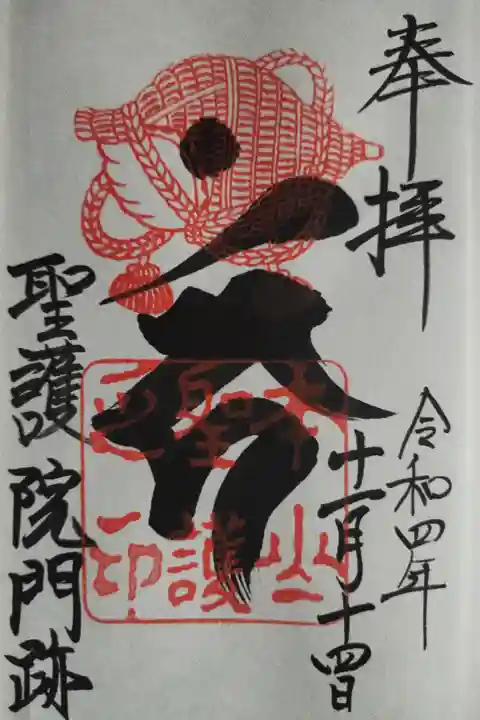 奉拝
令和四年
十一月十四日
本山
聖護
印
聖護院門跡